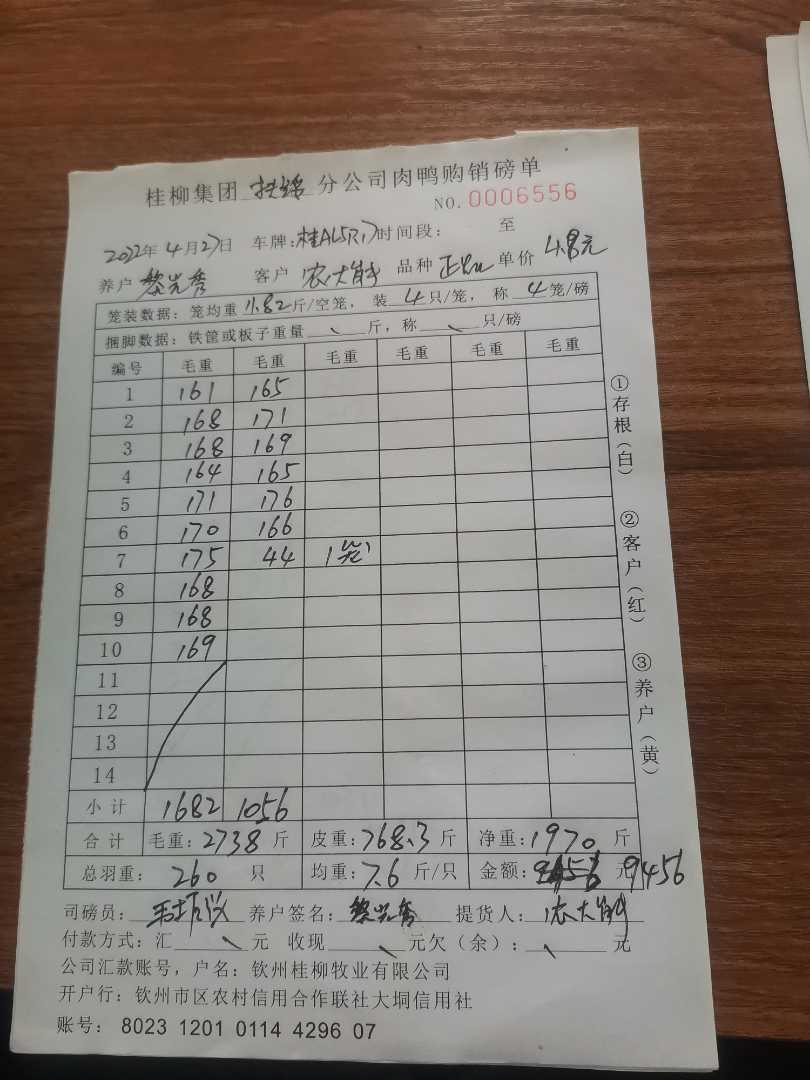 桂柳集团 扶绥 分公司肉鸭购销磅单
NO. 0006556
2022年4月27日 车牌: 时间段: 至
养户 黎光秀 客户 农大 品种 单价 4.8元
笼装数据: 笼均重 11.82 斤/空笼, 装 4 只/笼, 称 4 笼/磅
捆脚数据: 铁筐或板子重量 斤, 称 只/磅
编号 毛重 毛重 毛重 毛重 毛重 毛重
1 161 165
2 168 171
3 168 169
4 164 165
5 171 176
6 170 166
7 175 44 1笼
8 168
9 168
10 169
11
12
13
14
小计 1682 1056
合计 毛重: 2738 斤 皮重: 768.3 斤 净重: 1970 斤
总羽重: 260 只 均重: 7.6 斤/只 金额: 元 9456
司磅员: 养户签名: 黎光秀 提货人: 农大
付款方式: 汇 元 收现 元欠(余): 元
公司汇款账号, 户名: 钦州桂柳牧业有限公司
开户行: 钦州市区农村信用合作联社大垌信用社
账号: 8023 1201 0114 4296 07
①存根(白)
②客户(红)
③养户(黄)